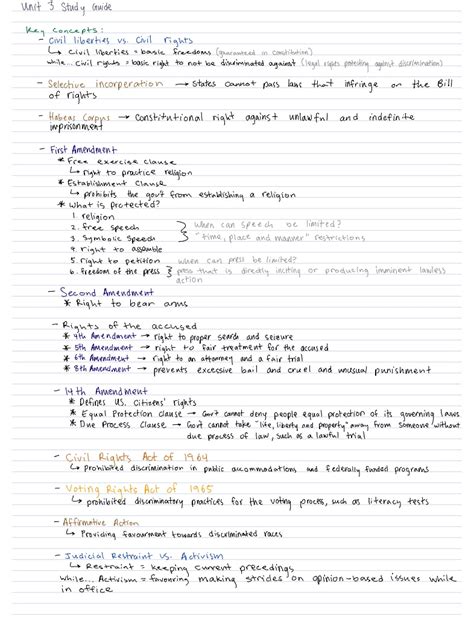 Unit 3 Study Guide
Key Concepts:
- Civil liberties vs. Civil rights
↳ Civil liberties = basic freedoms (guaranteed in constitution)
while... Civil rights = basic right to not be discriminated against (legal rights protecting against discrimination)
- Selective incorporation → States cannot pass laws that infringe on the Bill
of rights
- Habeas Corpus → Constitutional right against unlawful and indefinite
imprisonment
- First Amendment
* Free exercise clause
↳ right to practice religion
* Establishment Clause
↳ prohibits the gov't from establishing a religion
* What is protected?
1. religion
2. free speech
3. Symbolic Speech
when can speech be limited?
"time, place and manner" restrictions
4. right to assemble
5. right to petition
6. freedom of the press
when can press be limited?
press that is directly inciting or producing imminent lawless
action
- Second Amendment
* Right to bear arms
- Rights of the accused
* 4th Amendment → right to proper search and seizure
* 5th Amendment → right to fair treatment for the accused
* 6th Amendment → right to an attorney and a fair trial
* 8th Amendment → prevents excessive bail and cruel and unusual punishment
- 14th Amendment
* Defines US. citizens' rights
* Equal Protection Clause → Gov't cannot deny people equal protection of its governing laws
* Due Process Clause → Gov't cannot take "life, liberty and property" away from someone without
due process of law, such as a lawful trial
- Civil Rights Act of 1964
↳ Prohibited discrimination in public accommodations and federally funded programs
- Voting Rights Act of 1965
↳ prohibited discriminatory practices for the voting process, such as literacy tests
- Affirmative Action
↳ Providing favourment towards discriminated races
- Judicial Restraint vs. Activism
↳ Restraint = keeping current precedings
while... Activism = favouring making strides on opinion-based issues while
in office